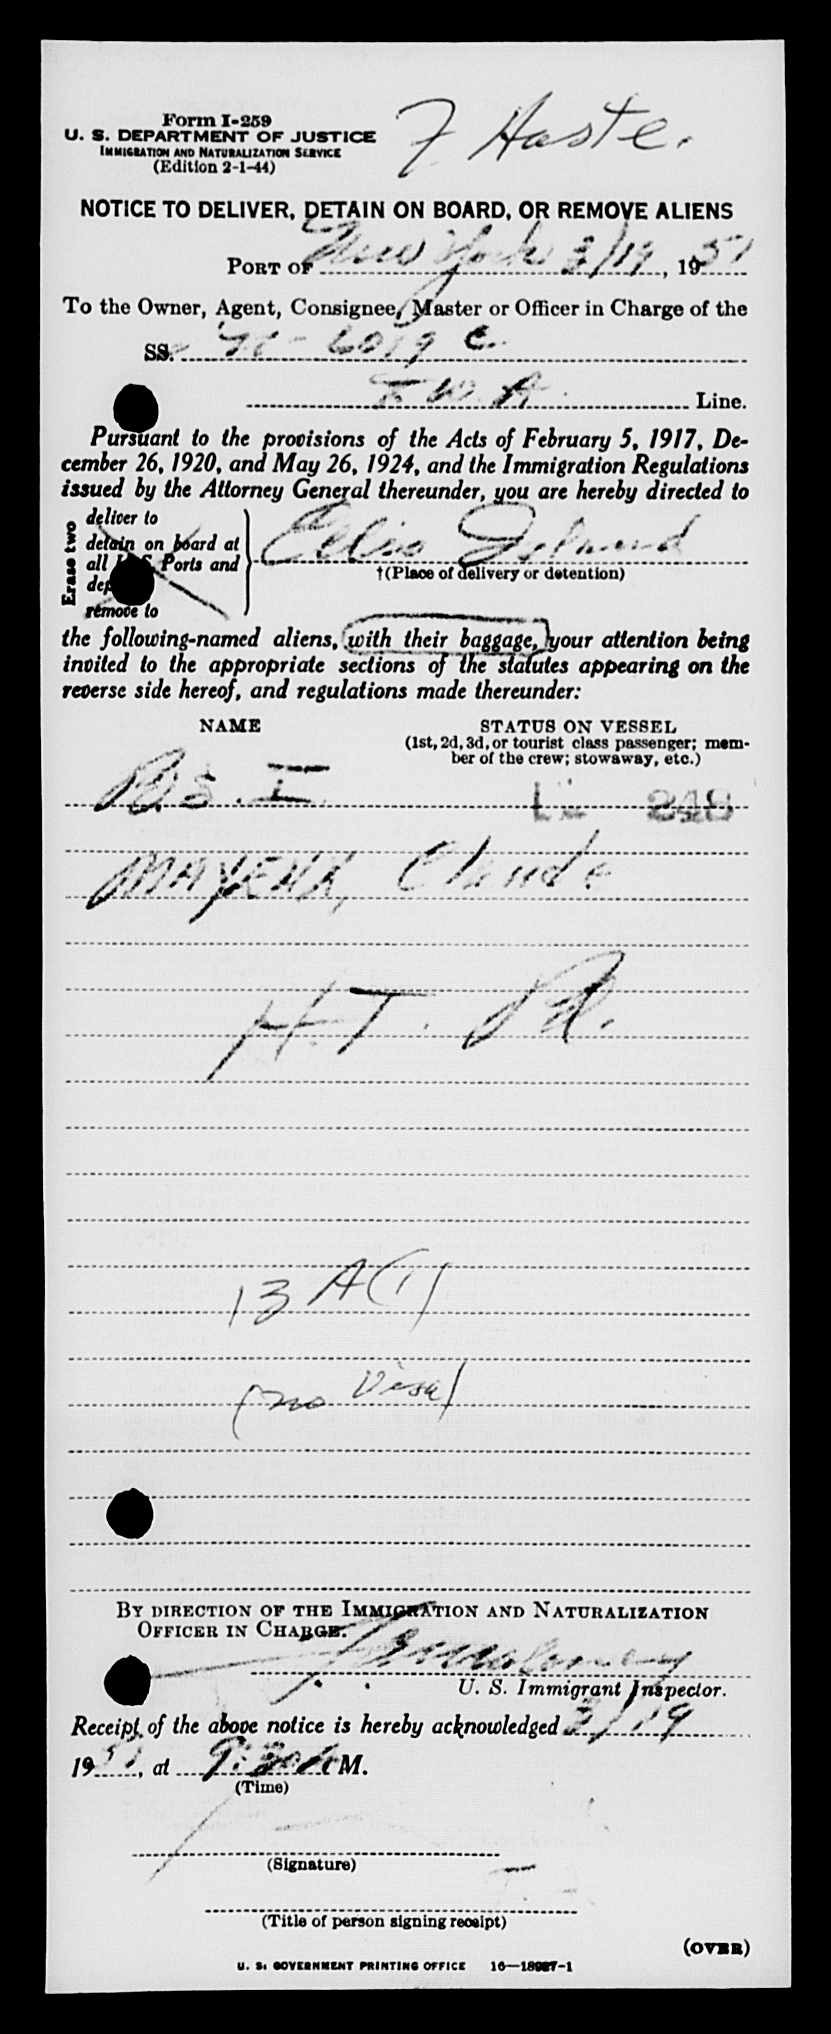 Form I-259
U. S. DEPARTMENT OF JUSTICE
IMMIGRATION AND NATURALIZATION SERVICE
(Edition 2-1-44)
F Haste.
NOTICE TO DELIVER, DETAIN ON BOARD, OR REMOVE ALIENS
PORT OF New York 3/19, 1951
To the Owner, Agent, Consignee, Master or Officer in Charge of the
SS. N-6019 C
T W A Line.
Pursuant to the provisions of the Acts of February 5, 1917, De-
cember 26, 1920, and May 26, 1924, and the Immigration Regulations
issued by the Attorney General thereunder, you are hereby directed to
Erase two
deliver to
detain on board at
all U. S. Ports and
remove to
Ellis Island
†(Place of delivery or detention)
the following-named aliens, with their baggage, your attention being
invited to the appropriate sections of the statutes appearing on the
reverse side hereof, and regulations made thereunder:
NAME STATUS ON VESSEL
(1st, 2d, 3d, or tourist class passenger; mem-
ber of the crew; stowaway, etc.)
B.S.I. 248
MAYENA, Claude
H.T. Pd.
13 A(1)
(no Visa)
BY DIRECTION OF THE IMMIGRATION AND NATURALIZATION
OFFICER IN CHARGE.
U. S. Immigrant Inspector.
Receipt of the above notice is hereby acknowledged 3/19
1951, at 9:30 A M.
(Time)
(Signature)
(Title of person signing receipt)
(OVER)
U. S. GOVERNMENT PRINTING OFFICE 16—18987-1